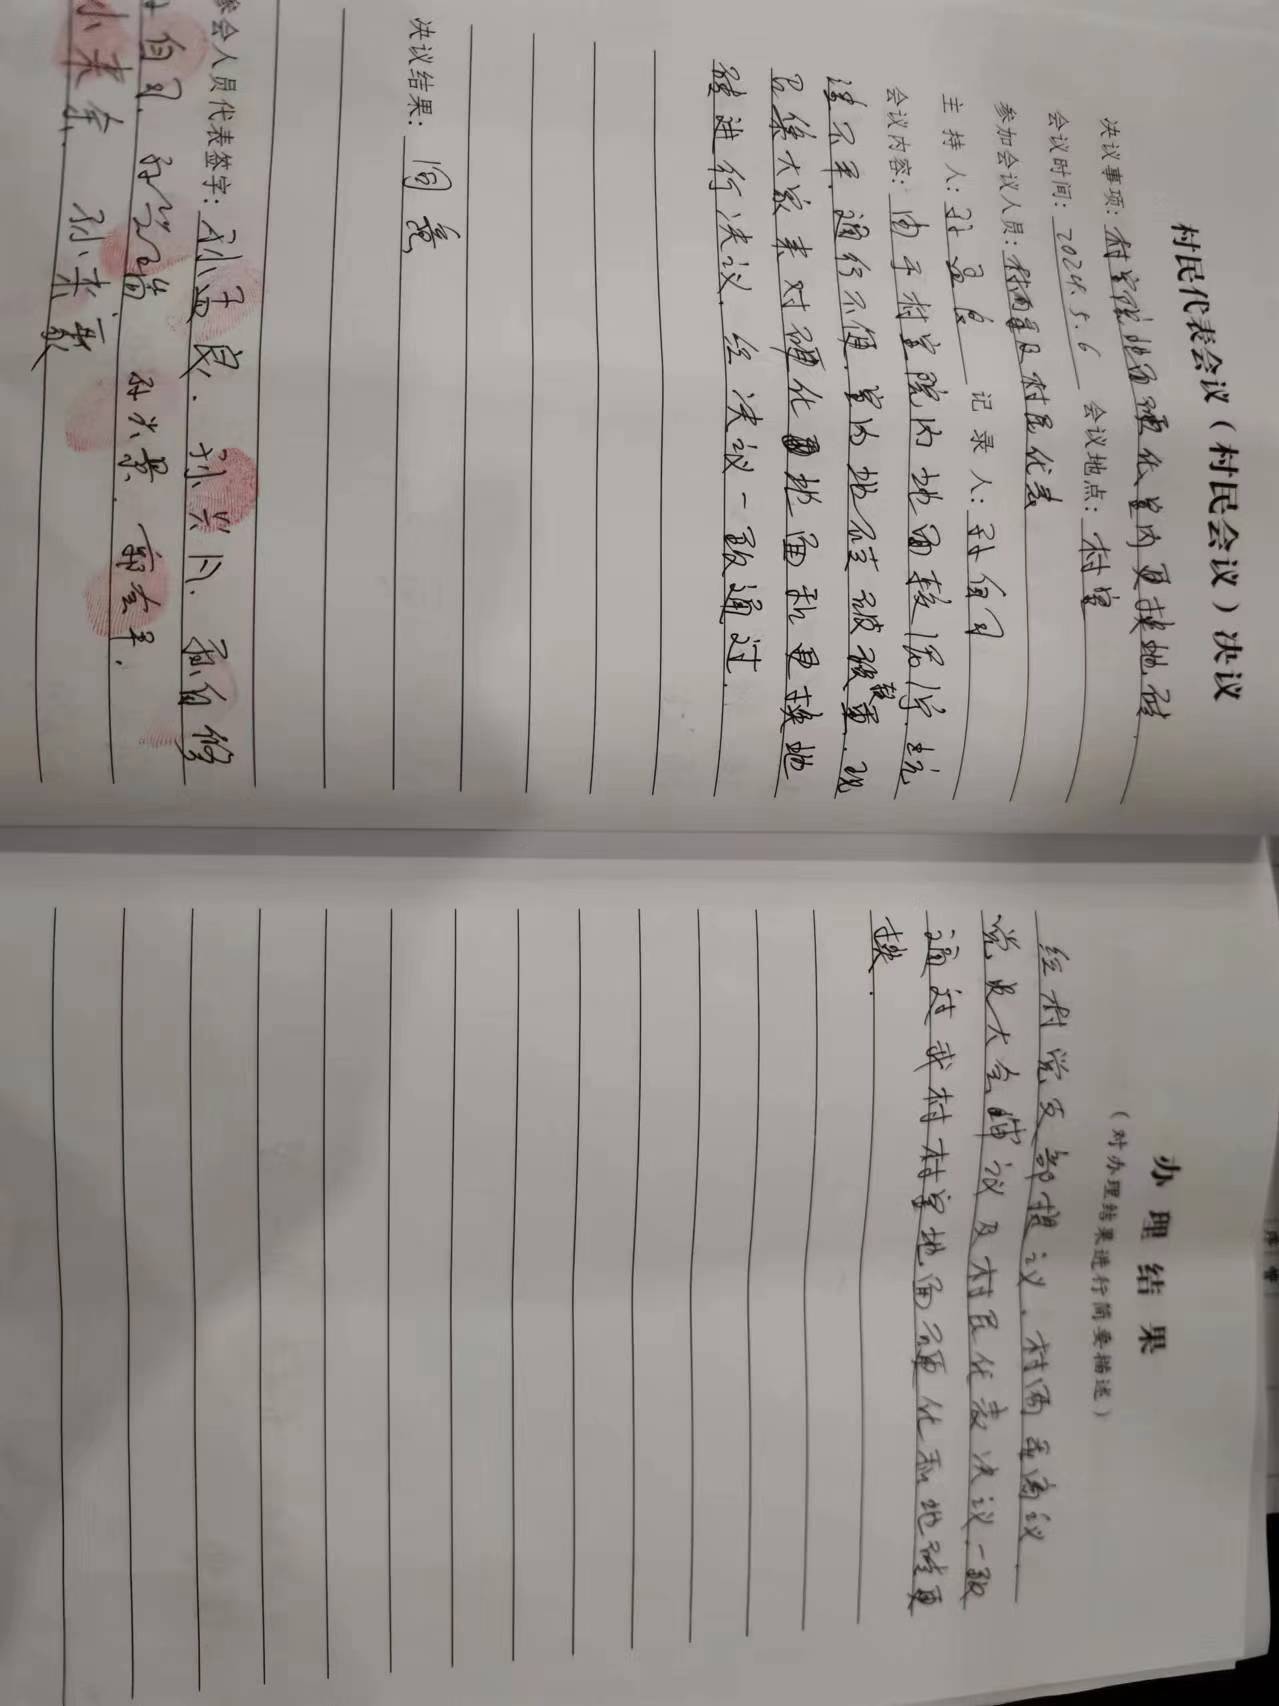 村民代表会议（村民会议）决议
决议事项：村室院地面硬化室内更换地砖.
会议时间：2024.5.6 会议地点：村室
参加会议人员：村两委及村民代表
主持人：孙孟良 记录人：孙自司
会议内容：由于村室院内地面较深浮.坑
洼不平.通行不便.室内地砖破较重.现
召集大家来对硬化地面和更换地
砖进行决议.经决议一致通过.
决议结果：同意
参会人员代表签字：孙孟良.孙兴凡.孙自修
自司.孙 孙兴景.
孙来余.孙来
办理结果
（对办理结果进行简要描述）
经村党支部提议.村两委商议
党员大会审议及村民代表决议.一致
通过我村村室地面硬化和地砖更
换.